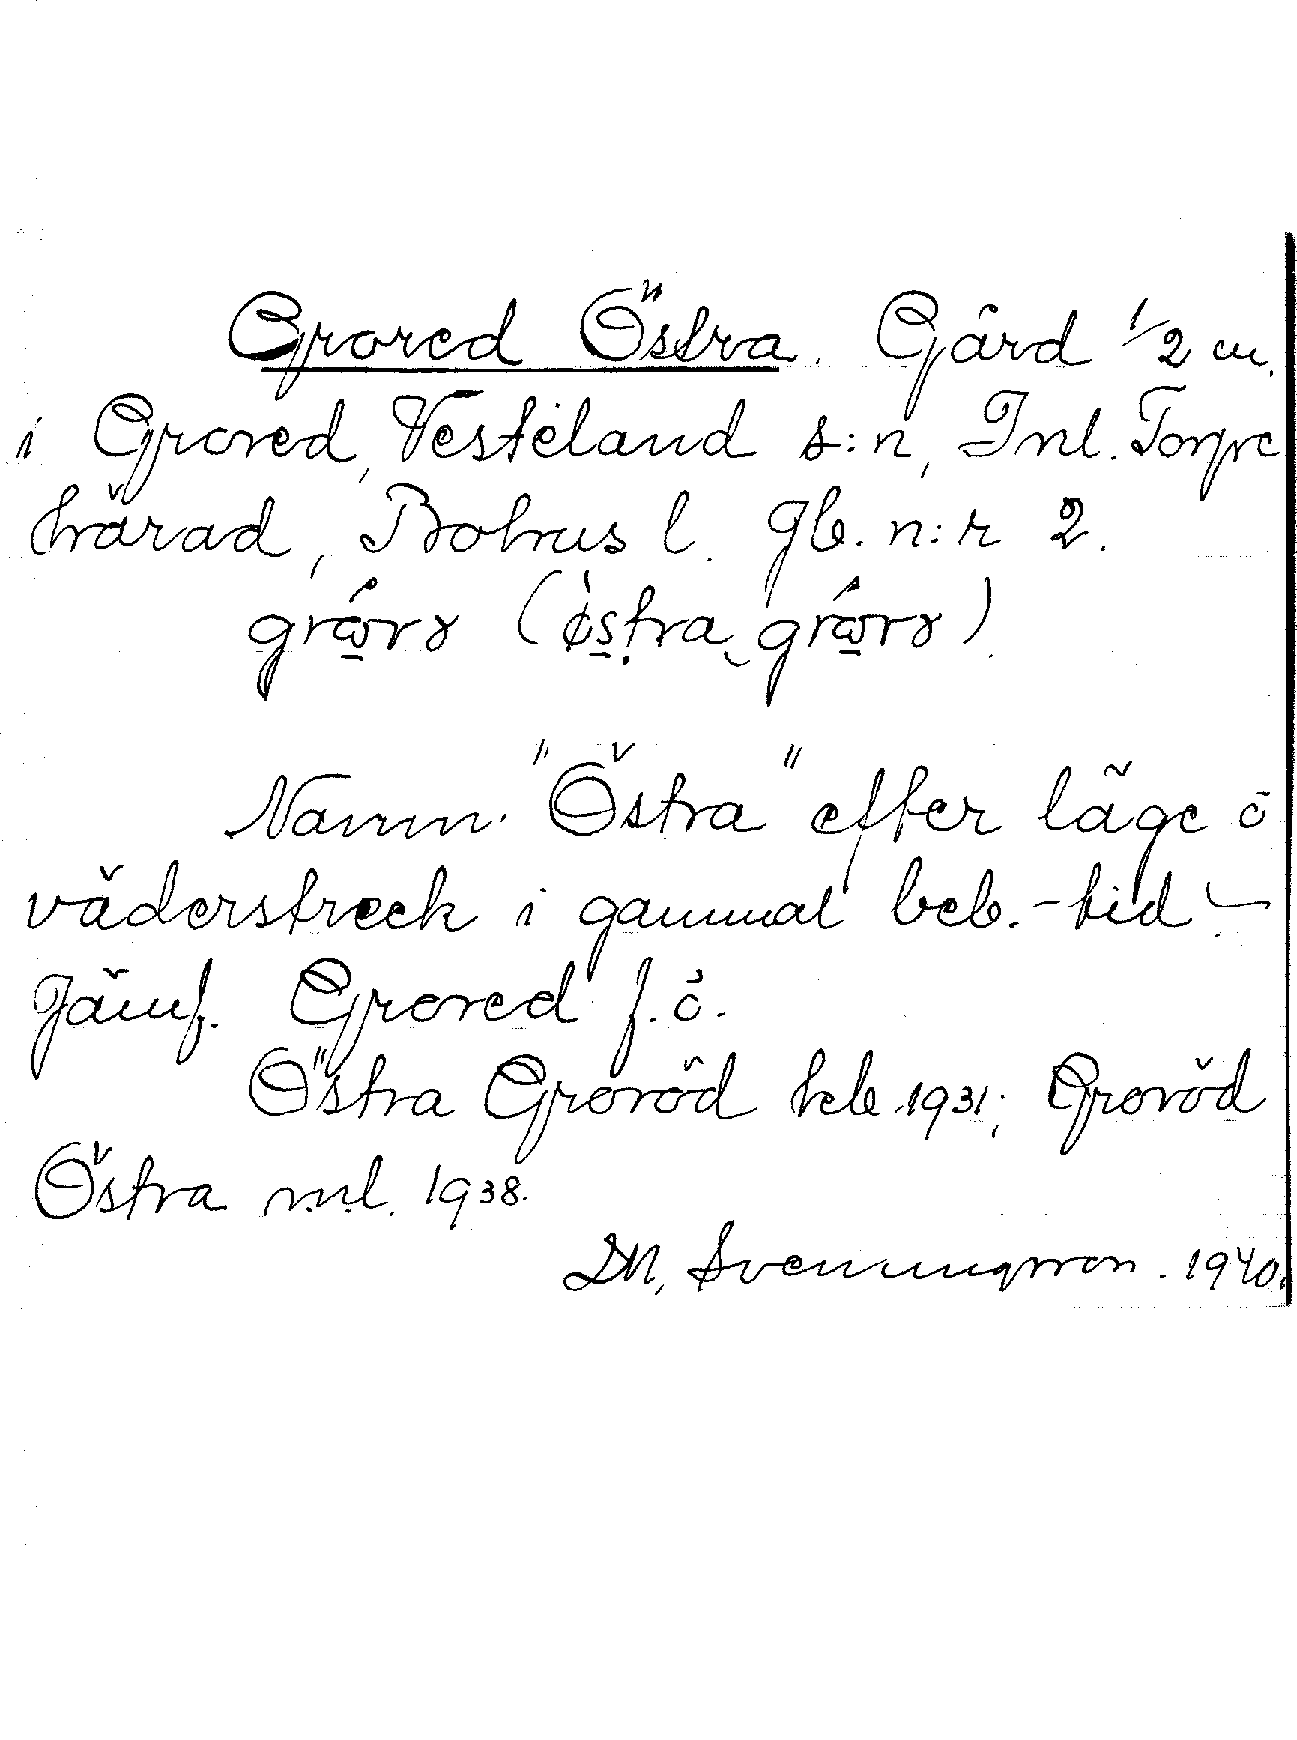 Grored Östra. Gård 1/2 m.
i Grored, Vesterland s:n, Inl. Torpe
härad, Bohus l. Jb. n:r 2.
Namn. "Östra" efter läge o
väderstreck i gammal beb.-tid. -
Jämf. Grored f. ö.
Östra Groröd kb. 1931; Groröd
Östra ml. 1938.
D.N. Svenningsson. 1940.